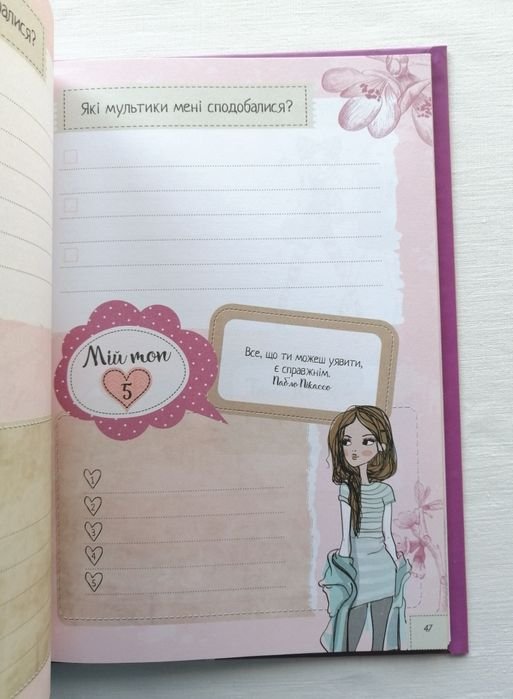 Які мультики мені сподобалися?
Мій топ
5
Все, що ти можеш уявити,
є справжнім.
Пабло Пікассо
1
2
3
4
5
47